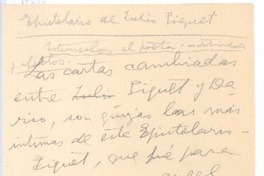 Epistolario de Julio Piquet
al poeta
Las cartas cambiadas
entre Julio Piquet y Da-
rio, son quizás las más
íntimas de este Epistolario
Piquet, que fué para